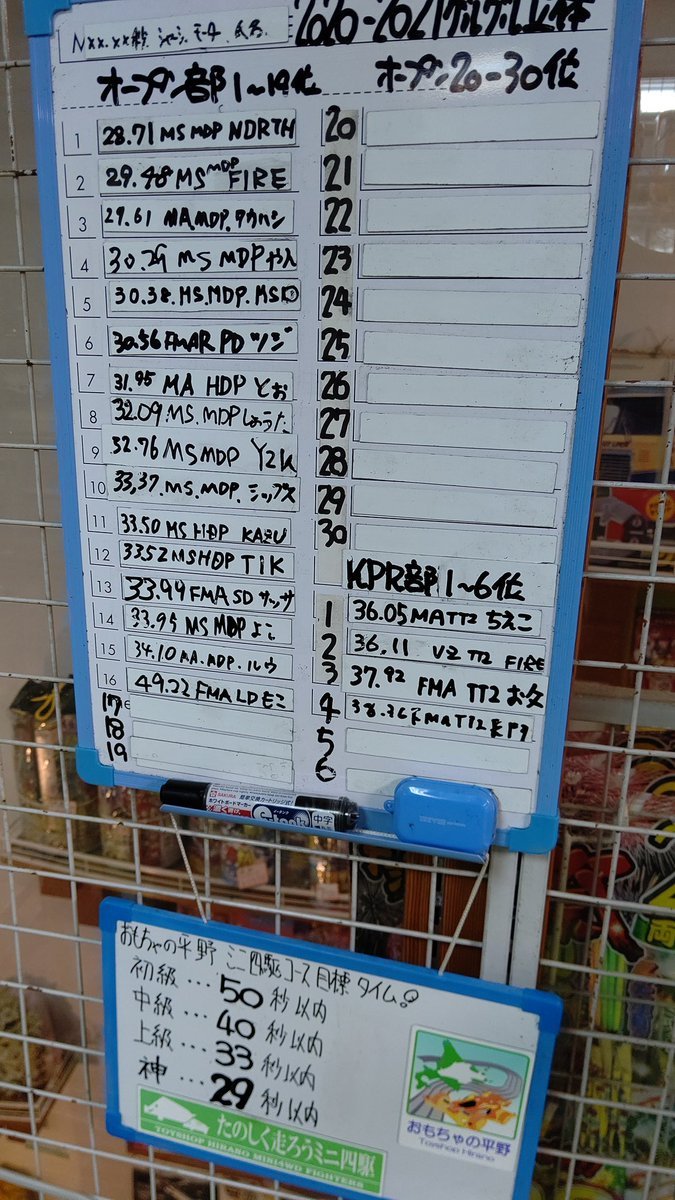 Nxx.xx秒 シャーシ モーター 氏名
2020-2021グルグル立体
オープン部1〜19位
1 28.71 MS MDP NORTH
2 29.48 MS MDP FIRE
3 29.61 MA.MDP.タカハシ
4 30.29 MS MDP やん
5 30.38.MS.MDP.MSD
6 30.56 FMAR PD ツジ
7 31.95 MA HDP とお
8 32.09.MS.MDP しょうた
9 32.76 MS MDP Y2K
10 33,37.MS.MDP.シップス
11 33.50 MS HDP KAZU
12 33.52 MSHDP TIK
13 33.94 FMA SD サッサ
14 33.95 MS MDP よこ
15 34.10 MA.MDP.ルウ
16 49.22 FMA LD モコ
17
18
19
オープン20-30位
20
21
22
23
24
25
26
27
28
29
30
KPR部1〜6位
1 36.05 MA TT2 ちえこ
2 36.11 VZ TT2 FIRE
3 37.92 FMA TT2 お父
4 38.36 FMA TT2
5
6
SAKURA
ホワイトボードマーカー
中字
おもちゃの平野 ミニ四駆コース目標タイム
初級…50秒以内
中級…40秒以内
上級…33秒以内
神…29秒以内
たのしく走ろうミニ四駆
TOYSHOP HIRANO MINI4WD FIGHTERS
おもちゃの平野
Toyshop Hirano